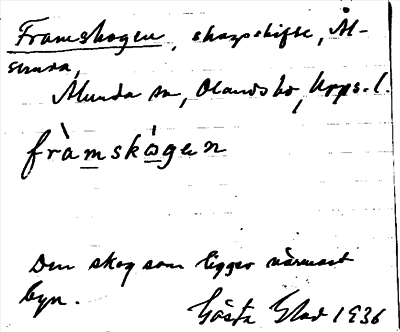 Framskogen, skogsskifte, Ål-
sunda,
Alunda sn, Olands hd, Upps. l.
fràmskógen
Den skog som ligger närmast
byn. Gösta Elad 1936